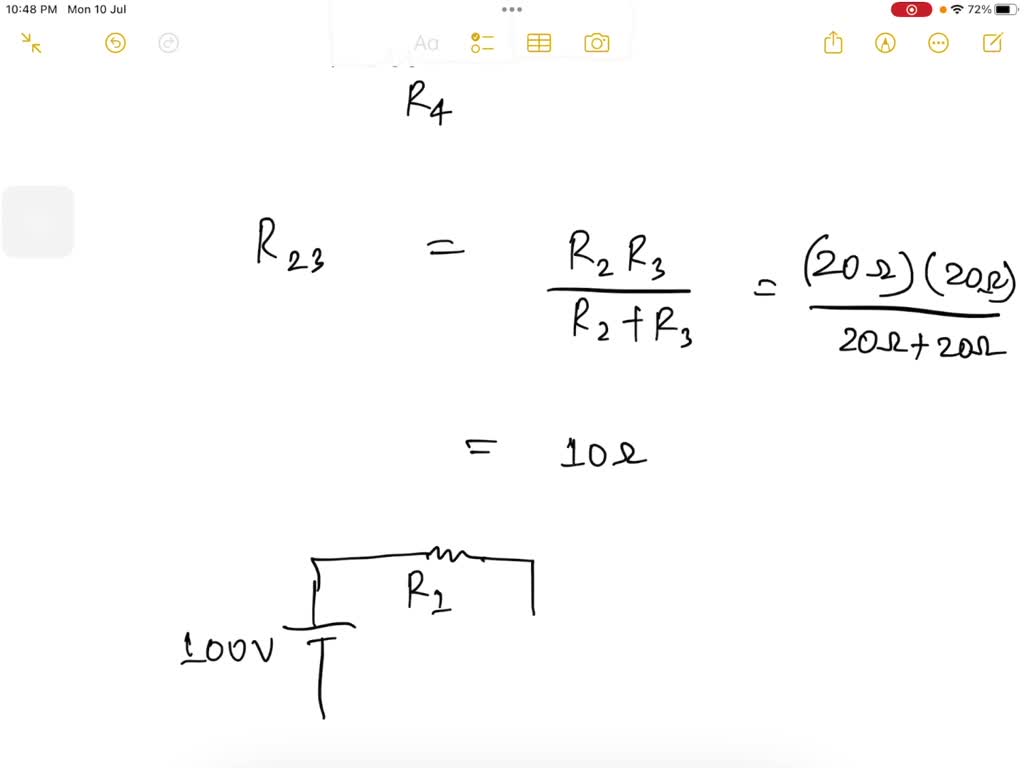 10:48 PM Mon 10 Jul
72%
Aa
R₄
R₂₃ = R₂ R₃ / R₂ + R₃ = (20Ω)(20Ω) / 20Ω + 20Ω
= 10Ω
R₁
100V